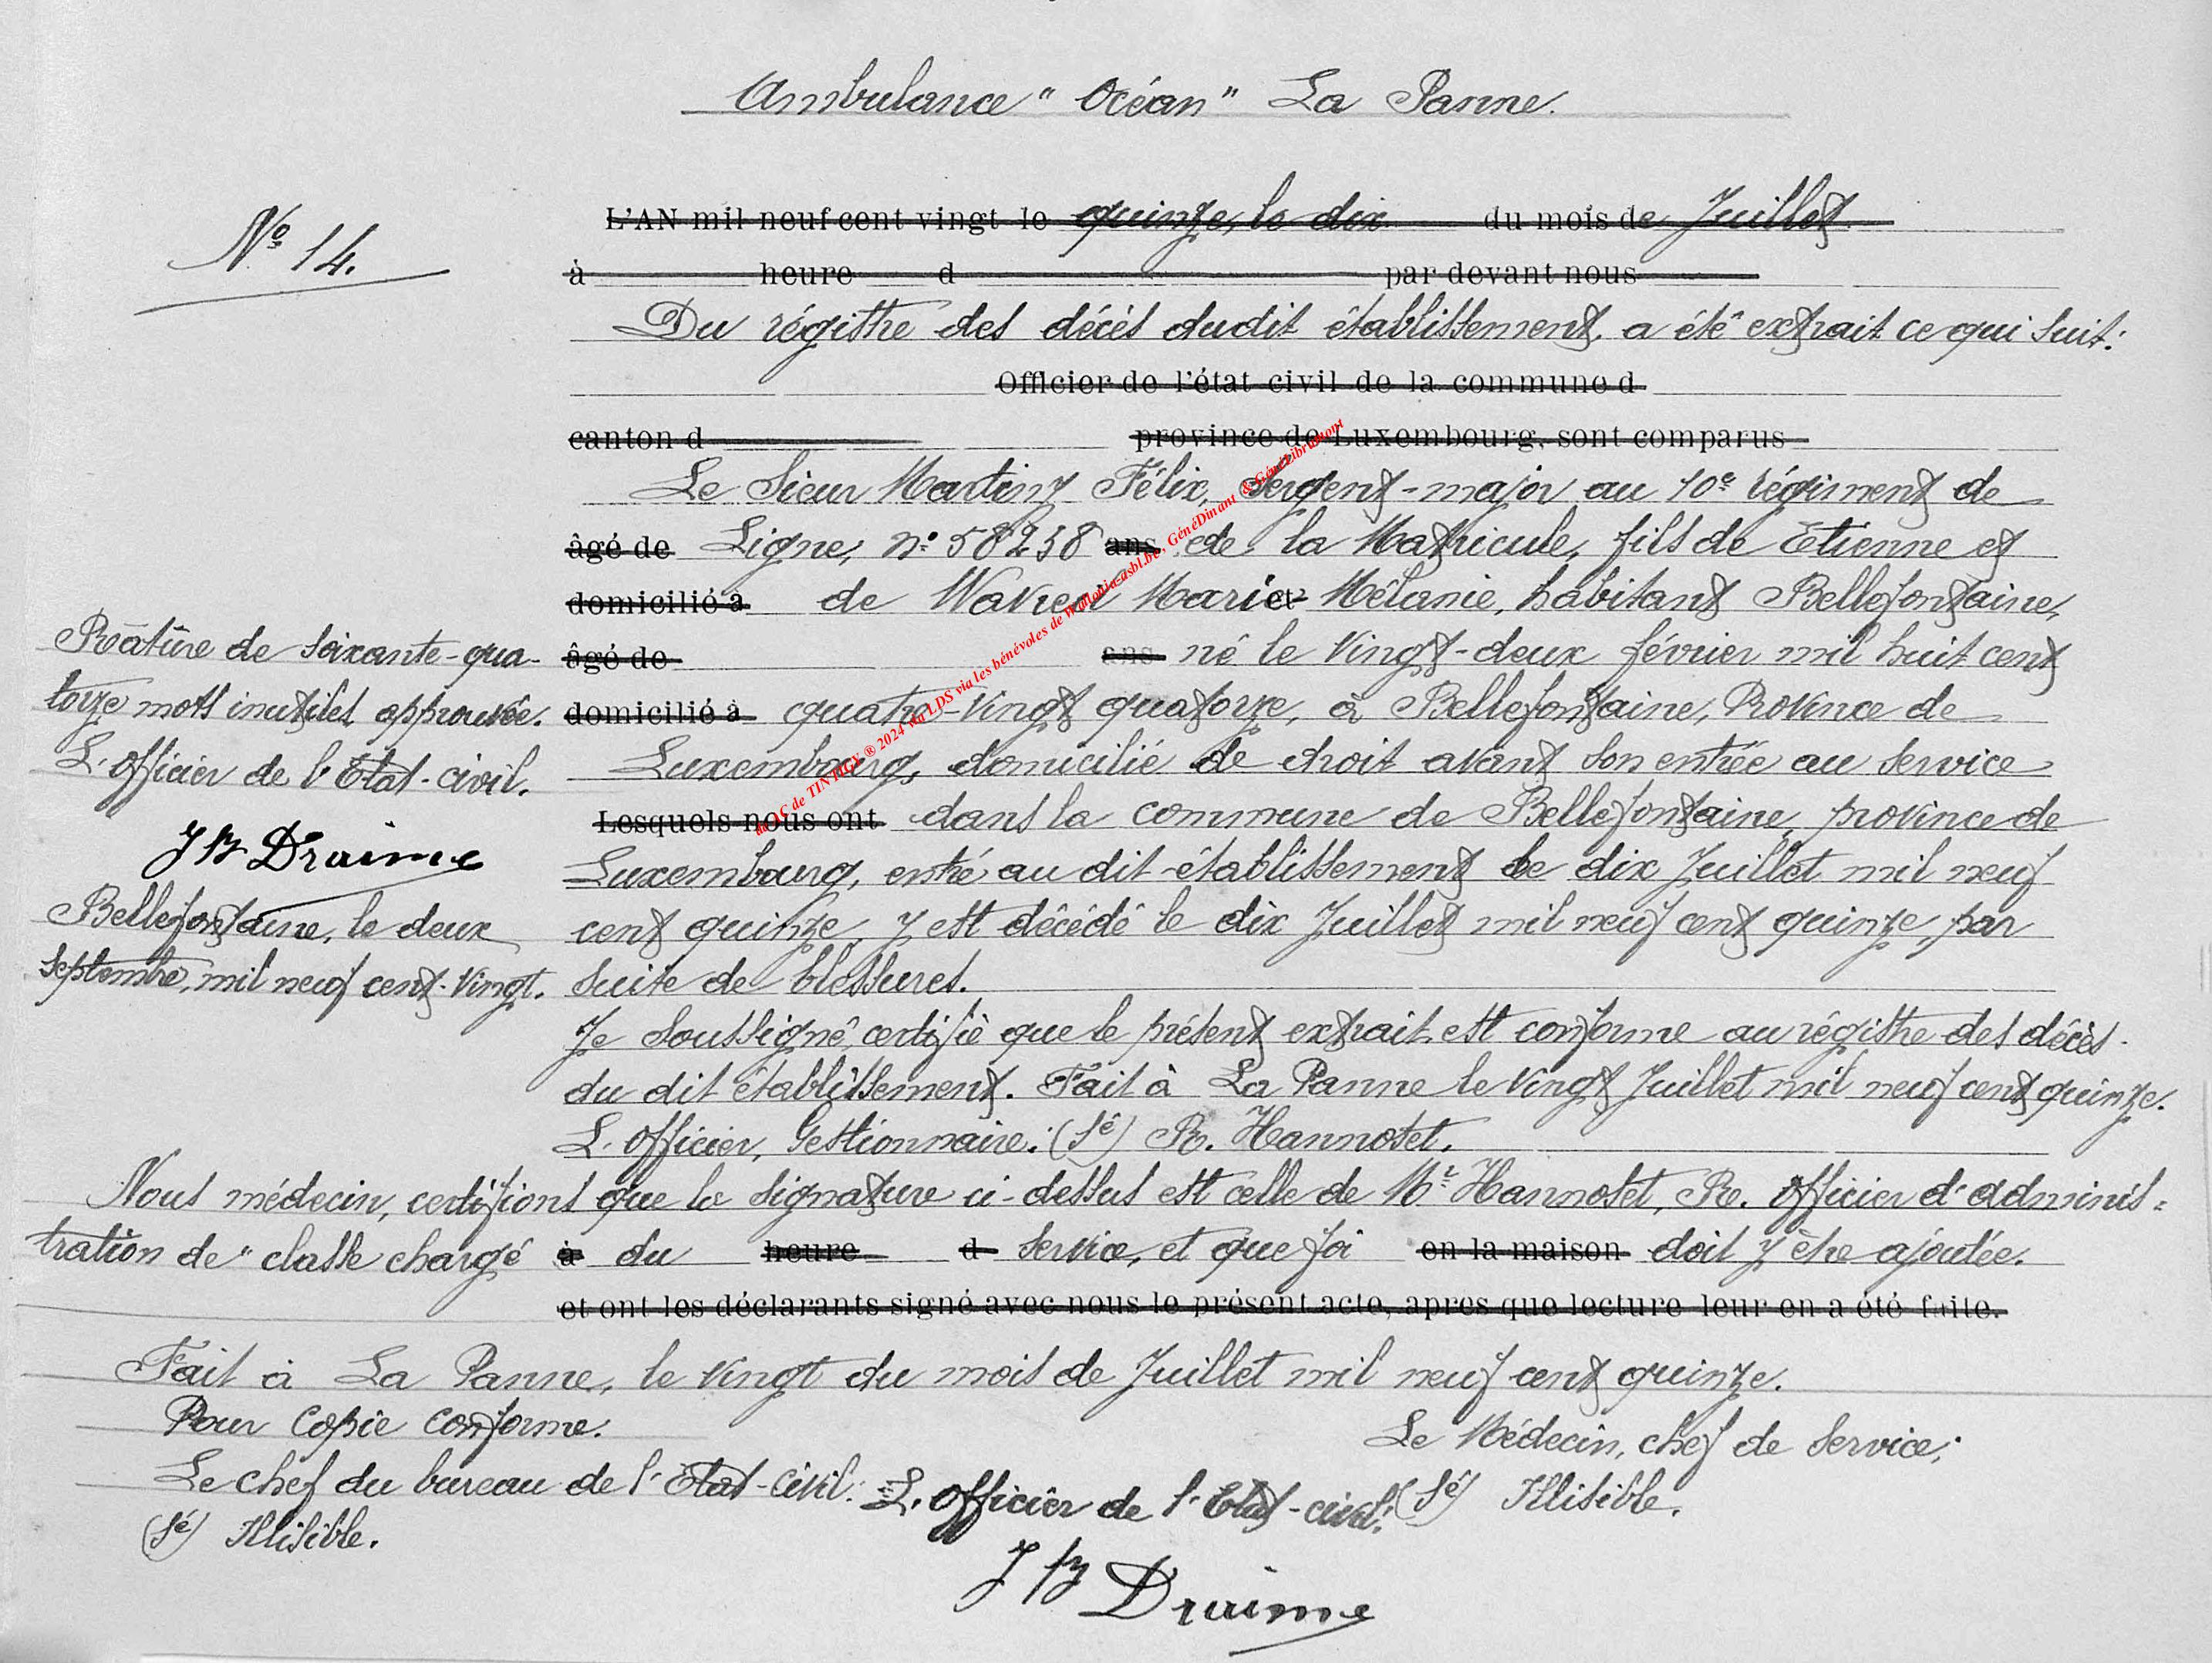 Ambulance "Océan" La Panne.
N° 14.
L'AN mil neuf cent vingt le quinze, le dix du mois de Juillet
à heure d par devant nous
Du régistre des décès dudit établissement a été extrait ce qui suit:
Officier de l'état civil de la commune d
canton d province de Luxembourg, sont comparus
Le Sieur Martiny Félix, sergent-major au 10e régiment de
âgé de Ligne, n° 58238 ans de la Matricule, fils de Etienne et
domicilié à de Marie et Mélanie, habitant Bellefontaine,
âgé de ans né le vingt-deux février mil huit cent
domicilié à quatre-vingt quatorze, à Bellefontaine, Province de
Luxembourg, domicilié de droit avant son entrée au service
Lesquels nous ont dans la commune de Bellefontaine, province de
Luxembourg, entré au dit établissement le dix Juillet mil neuf
cent quinze, y est décédé le dix Juillet mil neuf cent quinze, par
suite de blessures.
Je soussigné, certifie que le présent extrait est conforme au régistre des décès
du dit établissement. Fait à La Panne le vingt Juillet mil neuf cent quinze.
L'officier, Gestionnaire: (Sé) R. Hannotet.
Rature de soixante-qua-
torze mots inutiles approuvée.
L'officier de l'Etat-civil.
J B Draime
Bellefontaine, le deux
septembre, mil neuf cent-vingt.
Nous médecin, certifions que la signature ci-dessus est celle de Mr Hannotet, R. officier d'adminis-
tration de " classe chargé à du heure d service, et que foi en la maison doit y être ajoutée.
et ont les déclarants signé avec nous le présent acte, apres que lecture leur en a été faite.
Fait à La Panne, le vingt du mois de Juillet mil neuf cent quinze.
Pour copie conforme.
Le Médecin, chef de service;
Le chef du bureau de l'Etat-Civil:
(Sé) Illisible.
L'officier de l'Etat-civil:
(Sé) Illisible.
J B Draime
de TINTIGY ® 2024 via LDS via les bénévoles de Wallonia-asbl.be, GénéDinant & GénéLibramont